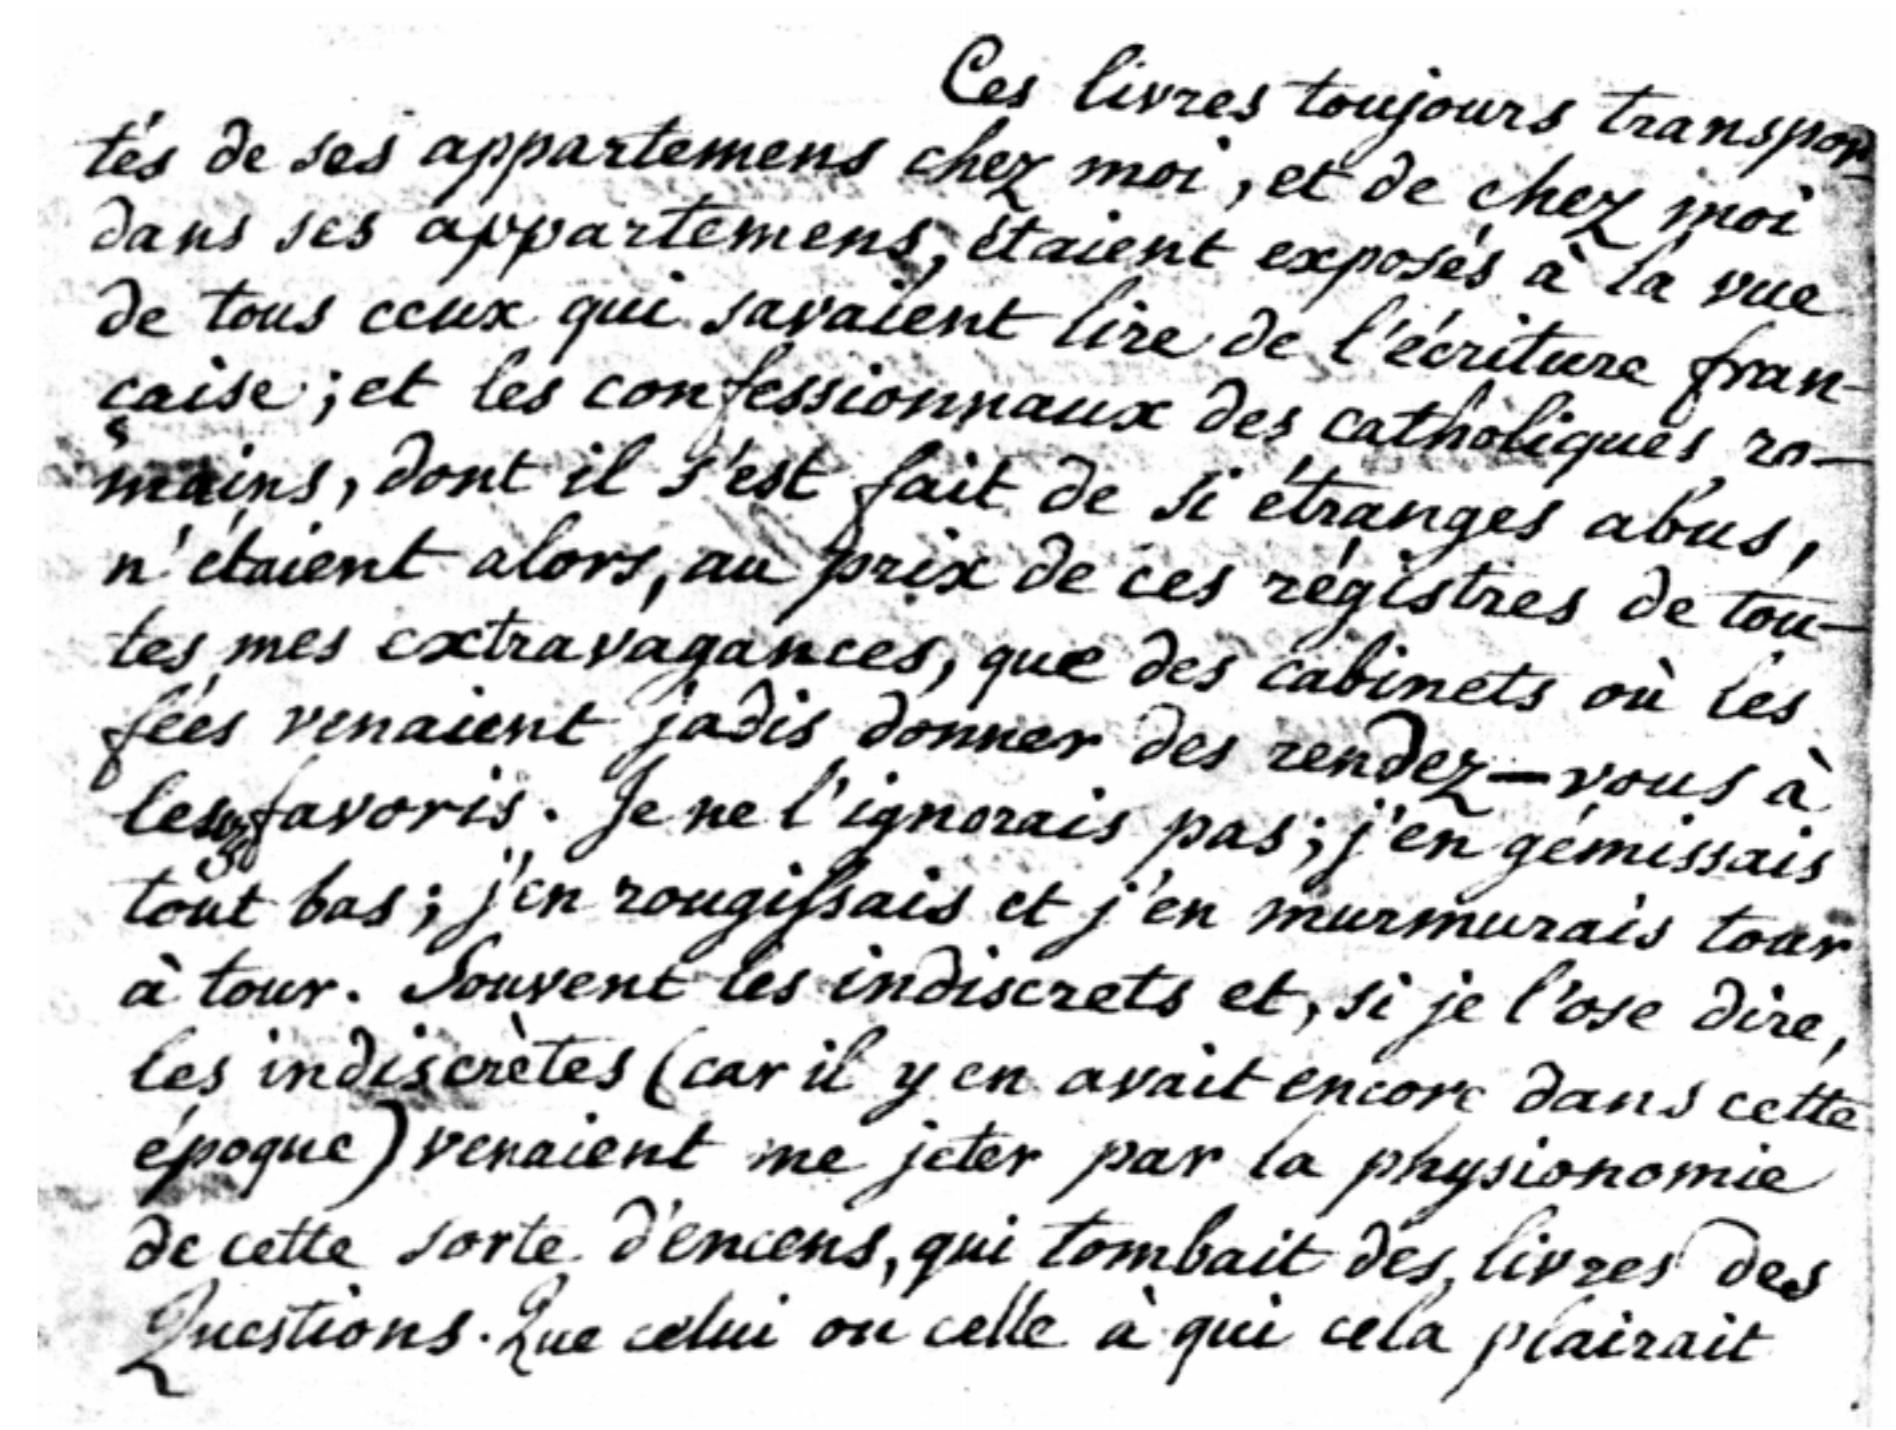 Ces livres toujours transpor-
tés de ses appartemens chez moi, et de chez moi
dans ses appartemens, étaient exposés à la vue
de tous ceux qui savaient lire de l'écriture fran-
çaise; et les confessionnaux des catholiques ro-
mains, dont il s'est fait de si étranges abus,
n'étaient alors, au prix de ces régistres de tou-
tes mes extravagances, que des cabinets où les
fées venaient jadis donner des rendez-vous à
favoris. Je ne l'ignorais pas; j'en gémissais
tout bas; j'en rougissais et j'en murmurais tour
à tour. Souvent les indiscrets et, si je l'ose dire,
les indiscrètes (car il y en avait encore dans cette
époque) venaient me jeter par la physionomie
de cette sorte d'encens, qui tombait des livres des
Questions. Que celui ou celle à qui cela plairait